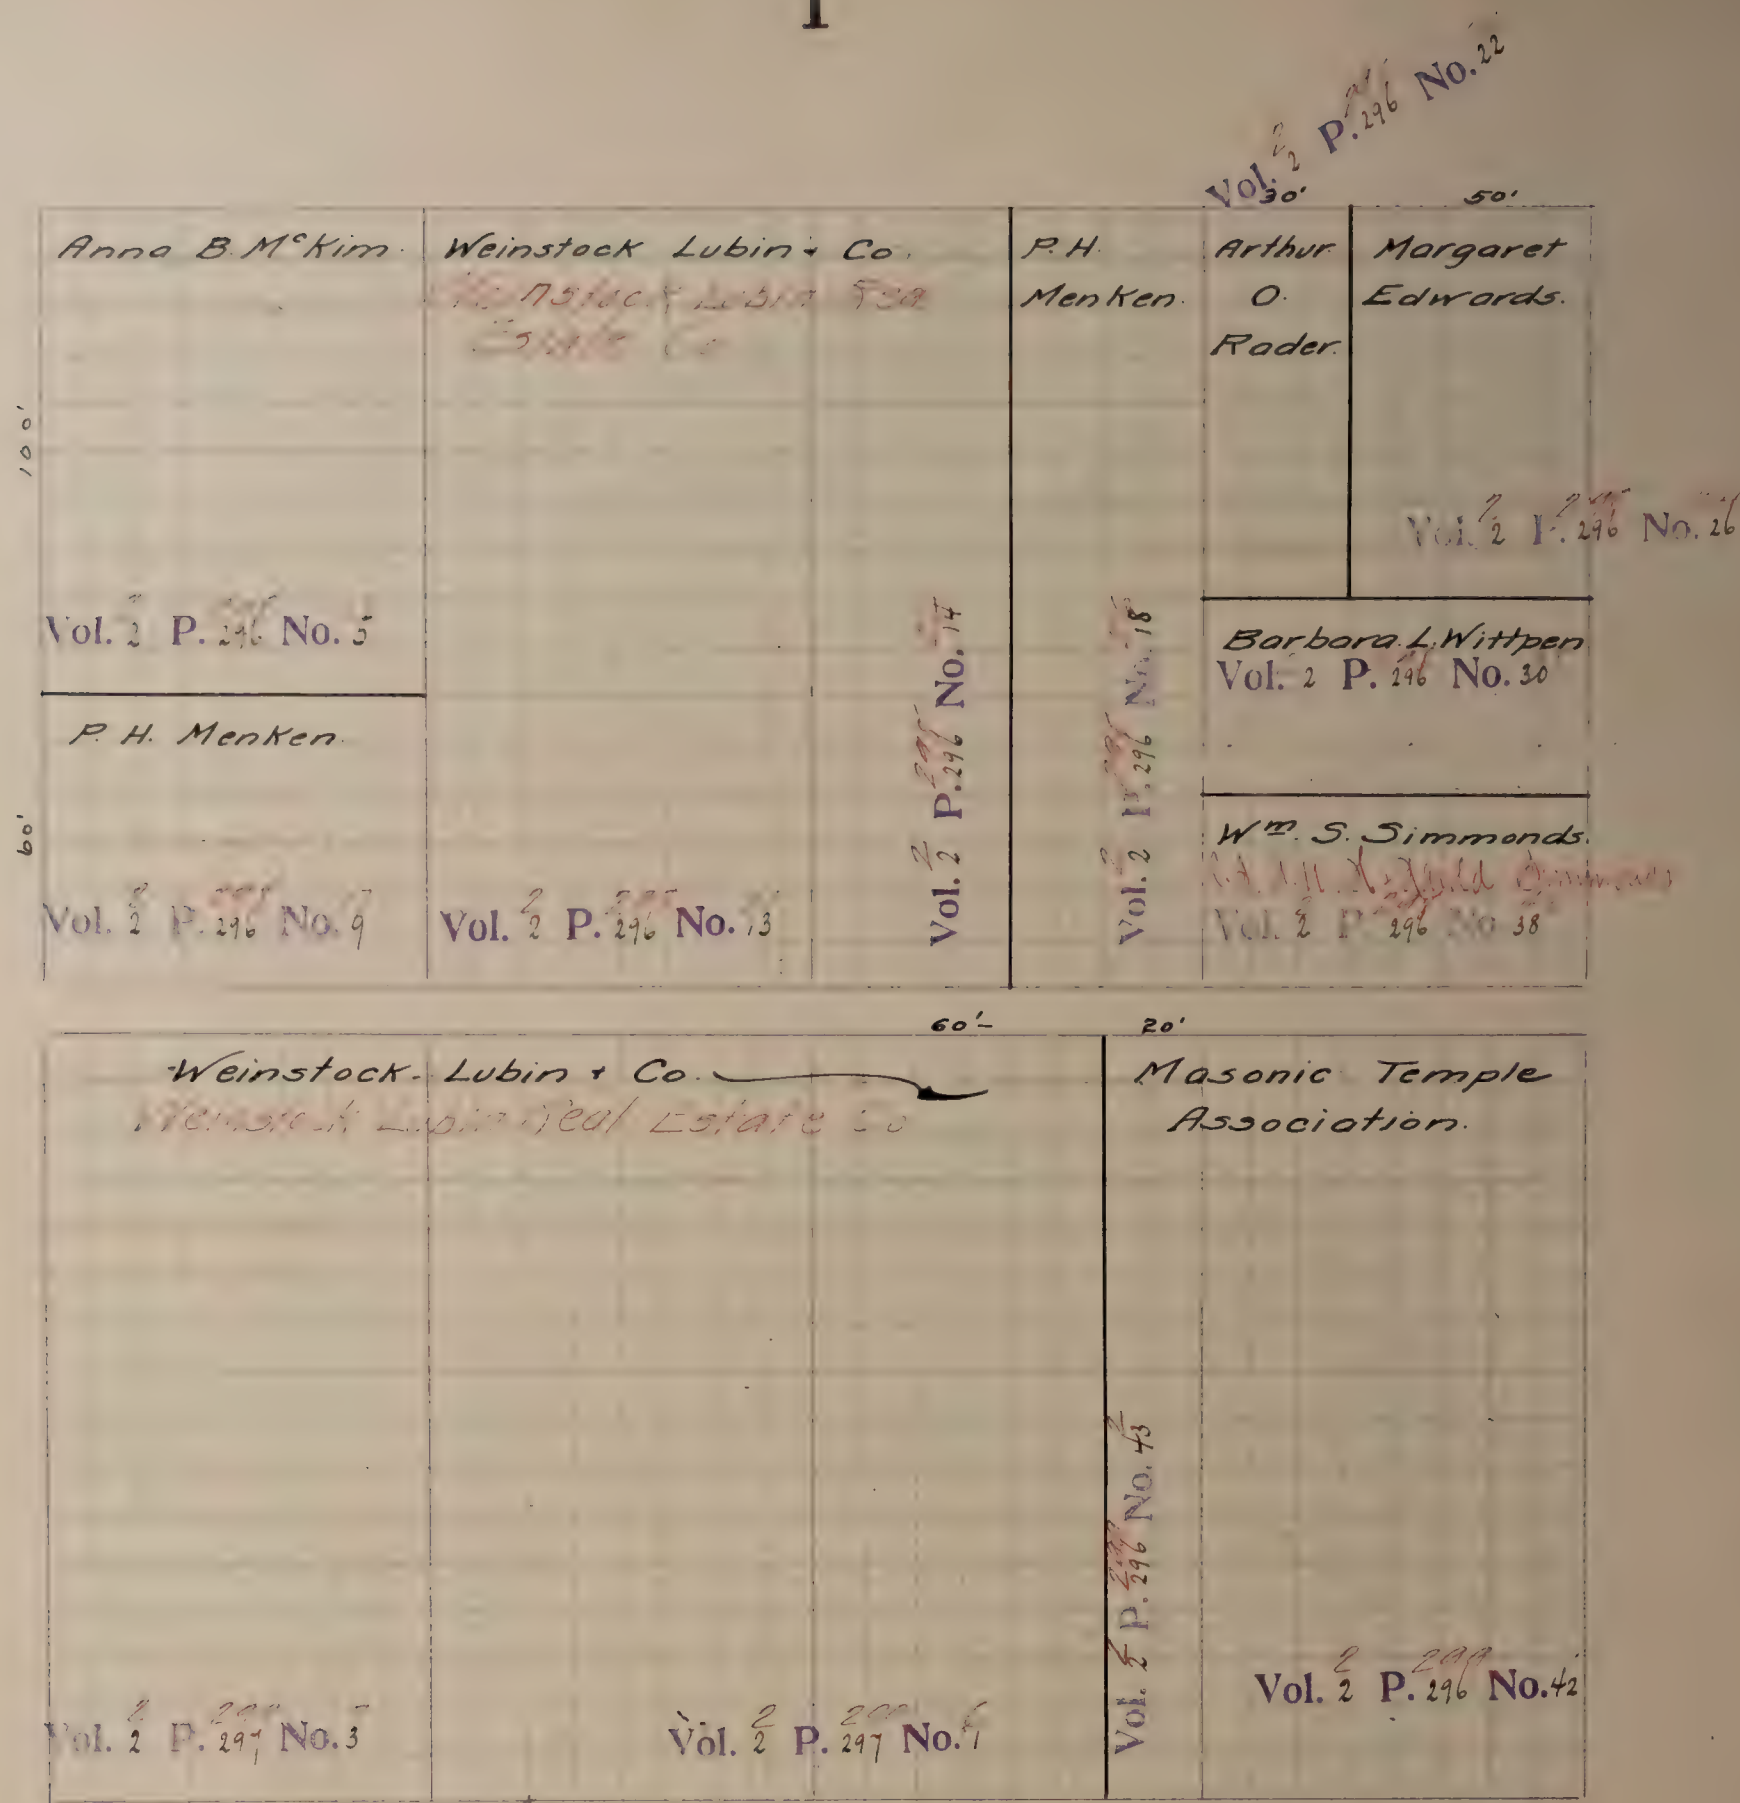 Vol. 2 P. 296 No. 22
30' 50'
Anna B. McKim.
Weinstock Lubin + Co.
P. H.
Menken.
Arthur
O.
Rader.
Margaret
Edwards.
100'
Vol. 2 P. 296 No. 26
Vol. 2 P. 296 No. 5
Vol. 2 P. 296 No. 14
Vol. 2 P. 296 No. 18
Barbara L. Wittpen
Vol. 2 P. 296 No. 30
P. H. Menken.
60'
Wm. S. Simmonds.
Vol. 2 P. 296 No. 9
Vol. 2 P. 296 No. 13
Vol. 2 P. 296 No. 38
60' 20'
Weinstock. Lubin + Co.
Weinstock Lubin Real Estate Co
Masonic Temple
Association.
Vol. 2 P. 296 No. 43
Vol. 2 P. 296 No. 42
Vol. 2 P. 297 No. 3
Vol. 2 P. 297 No. 1